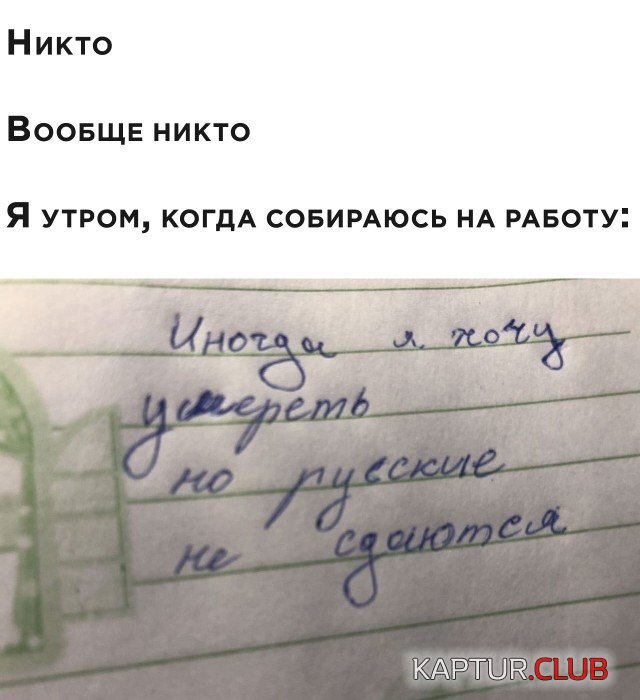 Никто
Вообще никто
Я утром, когда собираюсь на работу:
Иногда я хочу
умереть
но русские
не сдаются
KAPTUR.CLUB